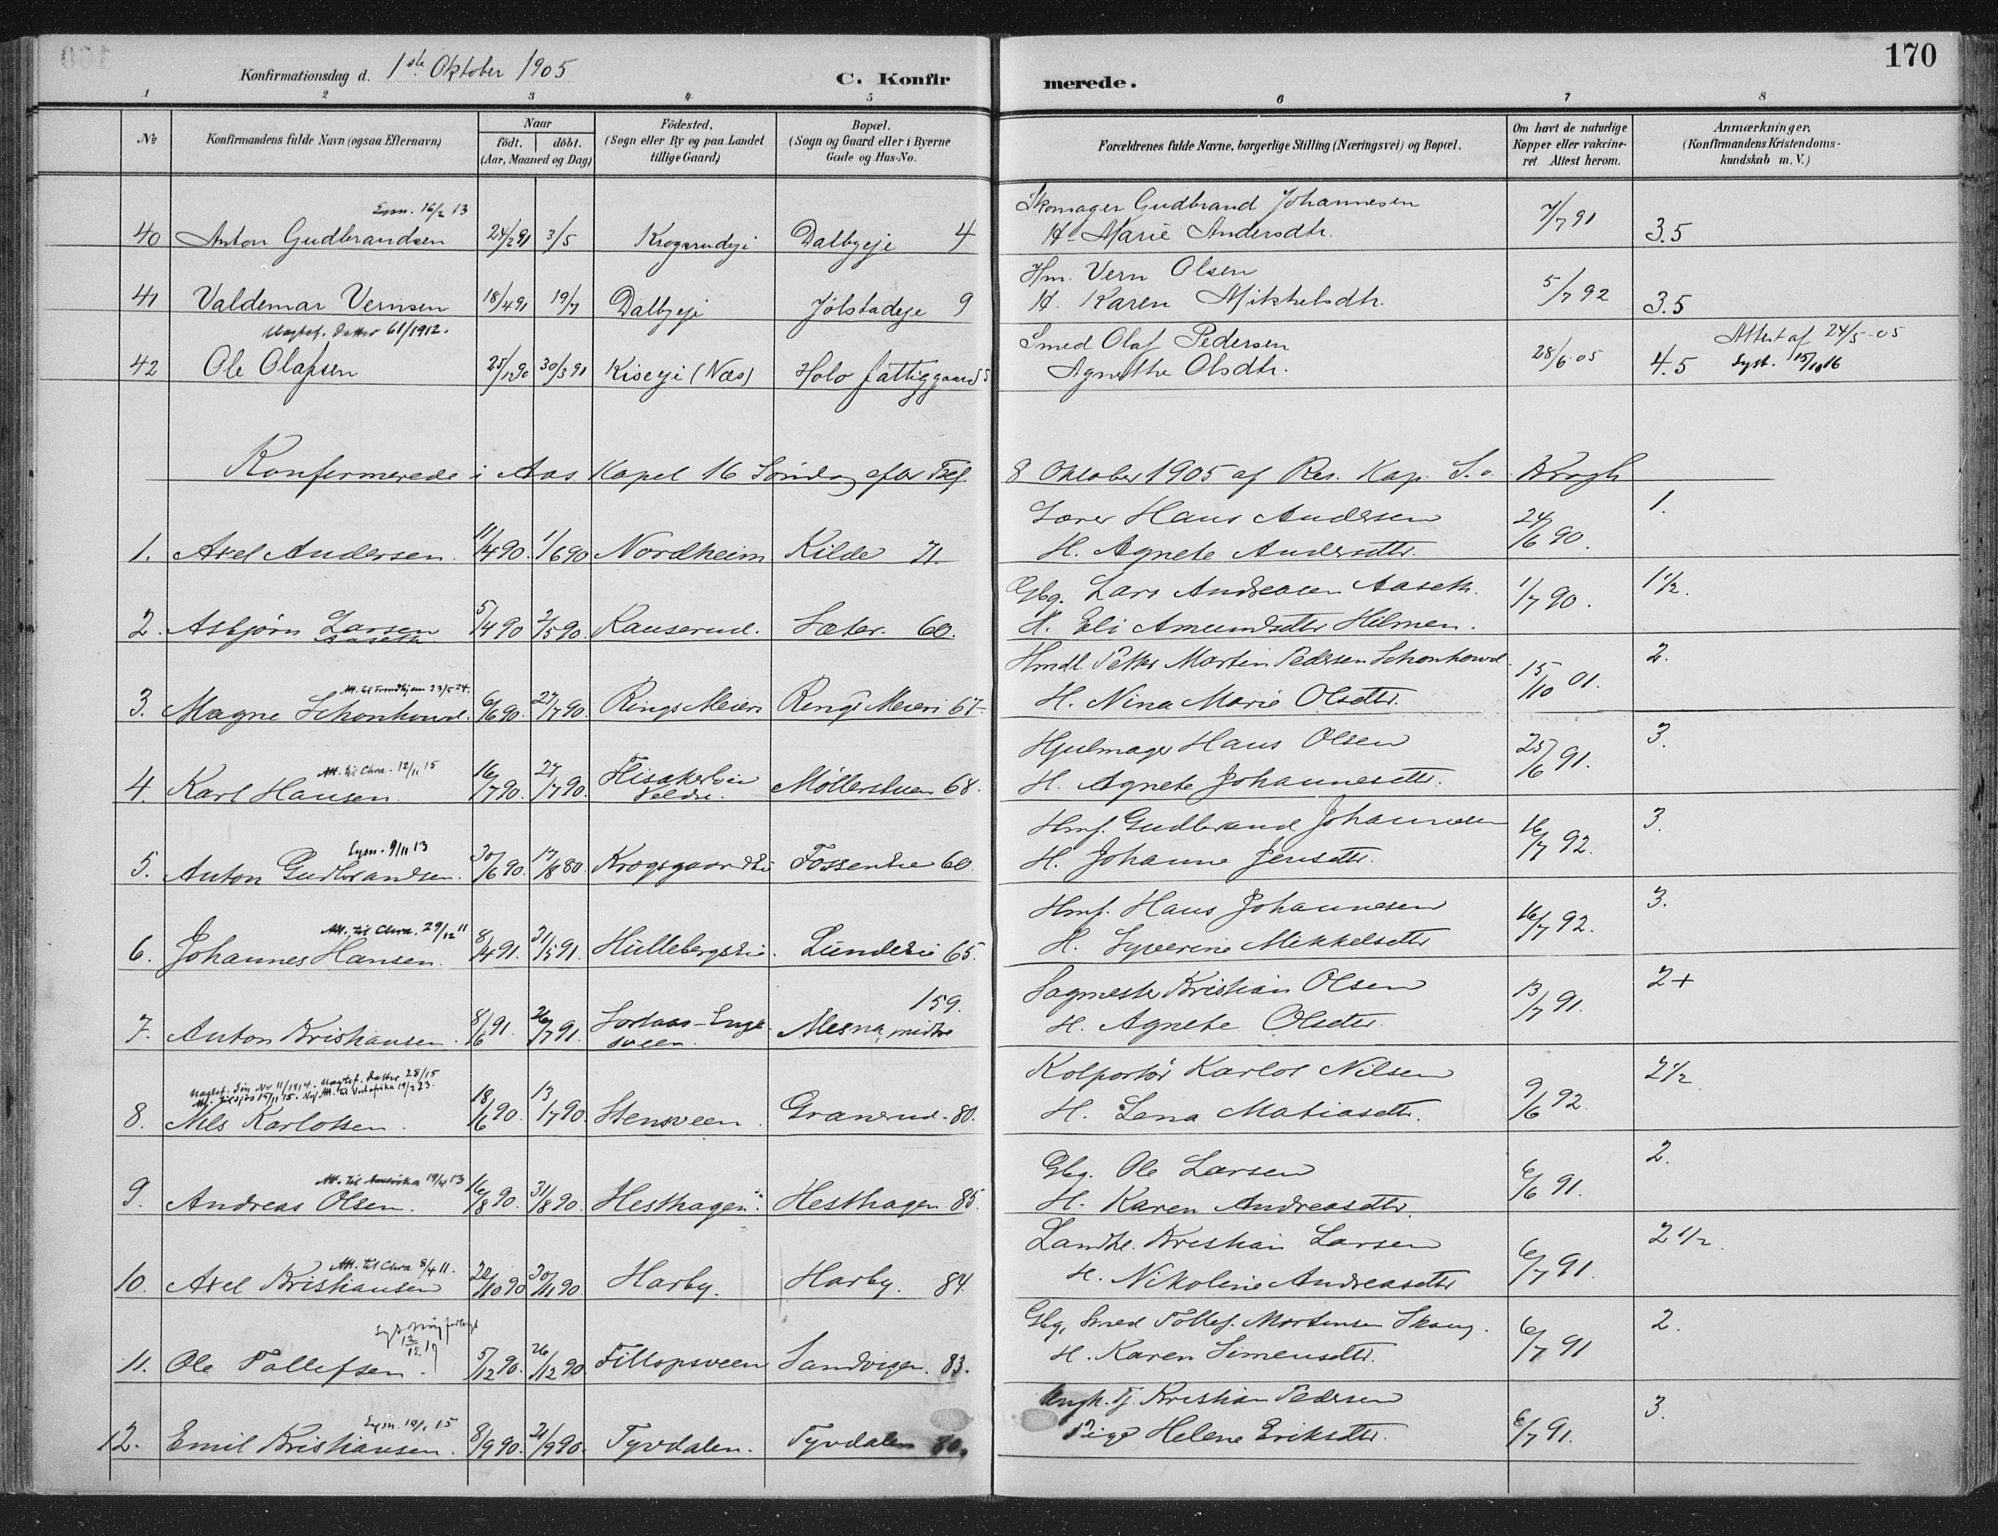 170
Konfirmationsdag d. 1ste Oktober 1905 C. Konfirmerede.
1 2 3 4 5 6 7 8
No Konfirmandens fulde Navn (ogsaa Efternavn) Naar født. døbt. (Aar, Maaned og Dag) Fødested. (Sogn eller By og paa Landet tillige Gaard) Bopæl. (Sogn og Gaard eller i Byerne Gade og Hus-No. Forældrenes fulde Navne, borgerlige Stilling (Næringsvei) og Bopæl. Om havt de naturlige Kopper eller vakcineret Attest herom. Anmærkninger. (Konfirmandens Kristendomskundskab m. V.)
Lysn. 16/2 13 Skomager Gudbrand Johannesen
40 Anton Gudbrandsen 24/2 91 3/5 Krogsrudeje Dalbyeje 4 H. Marie Andersdtr. 7/7 91 3.5
Hm. Vern Olsen
41 Valdemar Vernsen 18/4 91 19/7 Dalbyeje Jølstadeje 9 H. Karen Mikkelsdtr. 5/7 92 3.5
Uægtef. Datter 61/1912. Smed Olaf Pedersen Attest af 24/5-05
42 Ole Olafsen 25/12 90 30/3 91 Kiseeje (Næs) Holo fattiggaard Agnethe Olsdtr. 28/6 05 4.5 Lyst. 15/10 16
Konfirmerede i Aas Kapel 16 Søndag efter Tref. 8 Oktober 1905 af Res. Kap. S. Krogh
Lærer Hans Andersen 1.
1. Axel Andersen. 11/4 90. 1/6 90 Nordheim Kilde 71. H. Agnete Andersdtr. 24/6 90.
Gbg. Lars Andreasen Aaseth. 1 1/2.
2. Asbjørn Larsen Aaseth 5/4 90 2/5 90. Kauserud. Sæter. 60. H. Eli Amundsdtr Hilmen. 1/7 90.
Att. til Trondhjem 23/5 24. Hmdl. Petter Martin Pedersen Schonhowd 2.
3. Magne Schonhowd. 6/6 90. 27/7 90. Rings Meieri Rings Meieri 67 H. Nina Marie Olsdtr. 15/10 01.
Att. til Chra. 12/11 15 Hjulmager Hans Olsen 3.
4. Karl Hansen. 16/7 90. 27/7 90. Veldre. Møllerstuen 68. H. Agnete Johannesdtr. 25/6 91.
Lysn. 9/11 13 Hmf. Gudbrand Johannesen 3.
5. Anton Gudbrandsen. 30/6 90. 17/8 80 Krogsgaardsei Fosseneie 60. H. Johanne Jensdtr. 16/7 92.
Att. til Chra. 29/12 11 Hmf. Hans Johannesen 3.
6. Johannes Hansen. 8/4 91. 31/5 91. Hullebergseie. Lundeeie 65. H. Syverine Mikkelsdtr 16/7 92.
159. Sagmester Kristian Olsen 2+
7. Anton Kristiansen. 8/6 91. 26/7 91. Mesna, midtre H. Agnete Olsdtr. 13/7 91.
Uægtef. Søn No 11/1914. Uægtef. Datter 28/15 Kolportør Karlot Nilsen 2 1/2.
8. Nils Karlotsen. 18/6 90. 13/7 90. Stensveen. Granerud. 80. H. Lena Matiasdtr. 9/6 92.
Att. til Amerika 19/4 13 Gbg. Ole Larsen 2.
9. Andreas Olsen. 16/8 90. 31/8 90. Hesthagen. Hesthagen 85. H. Karen Andreasdtr. 6/6 91.
Att. til Chra 8/4 11. Landhl. Kristian Larsen 2 1/2.
10. Axel Kristiansen 22/10 90 30/11 90. Harby. Harby. 84. H. Nikoline Andreasdtr 6/7 91.
12/12 19 Gbg, Smed Tollef. Mortensen Skaug. 2.
11. Ole Tollefsen. 5/12 90. 26/12 90. Fillopsveen Sandvigen. 83. H. Karen Simensdtr. 6/7 91
Lysn. 10/1 15 Ungk. Tj. Kristian Pedersen 3.
12. Emil Kristiansen. 8/9 90. 21/9 90. Tyvdalen. Tyvdalen 80. Pige Helene Eriksdtr. 6/7 91.